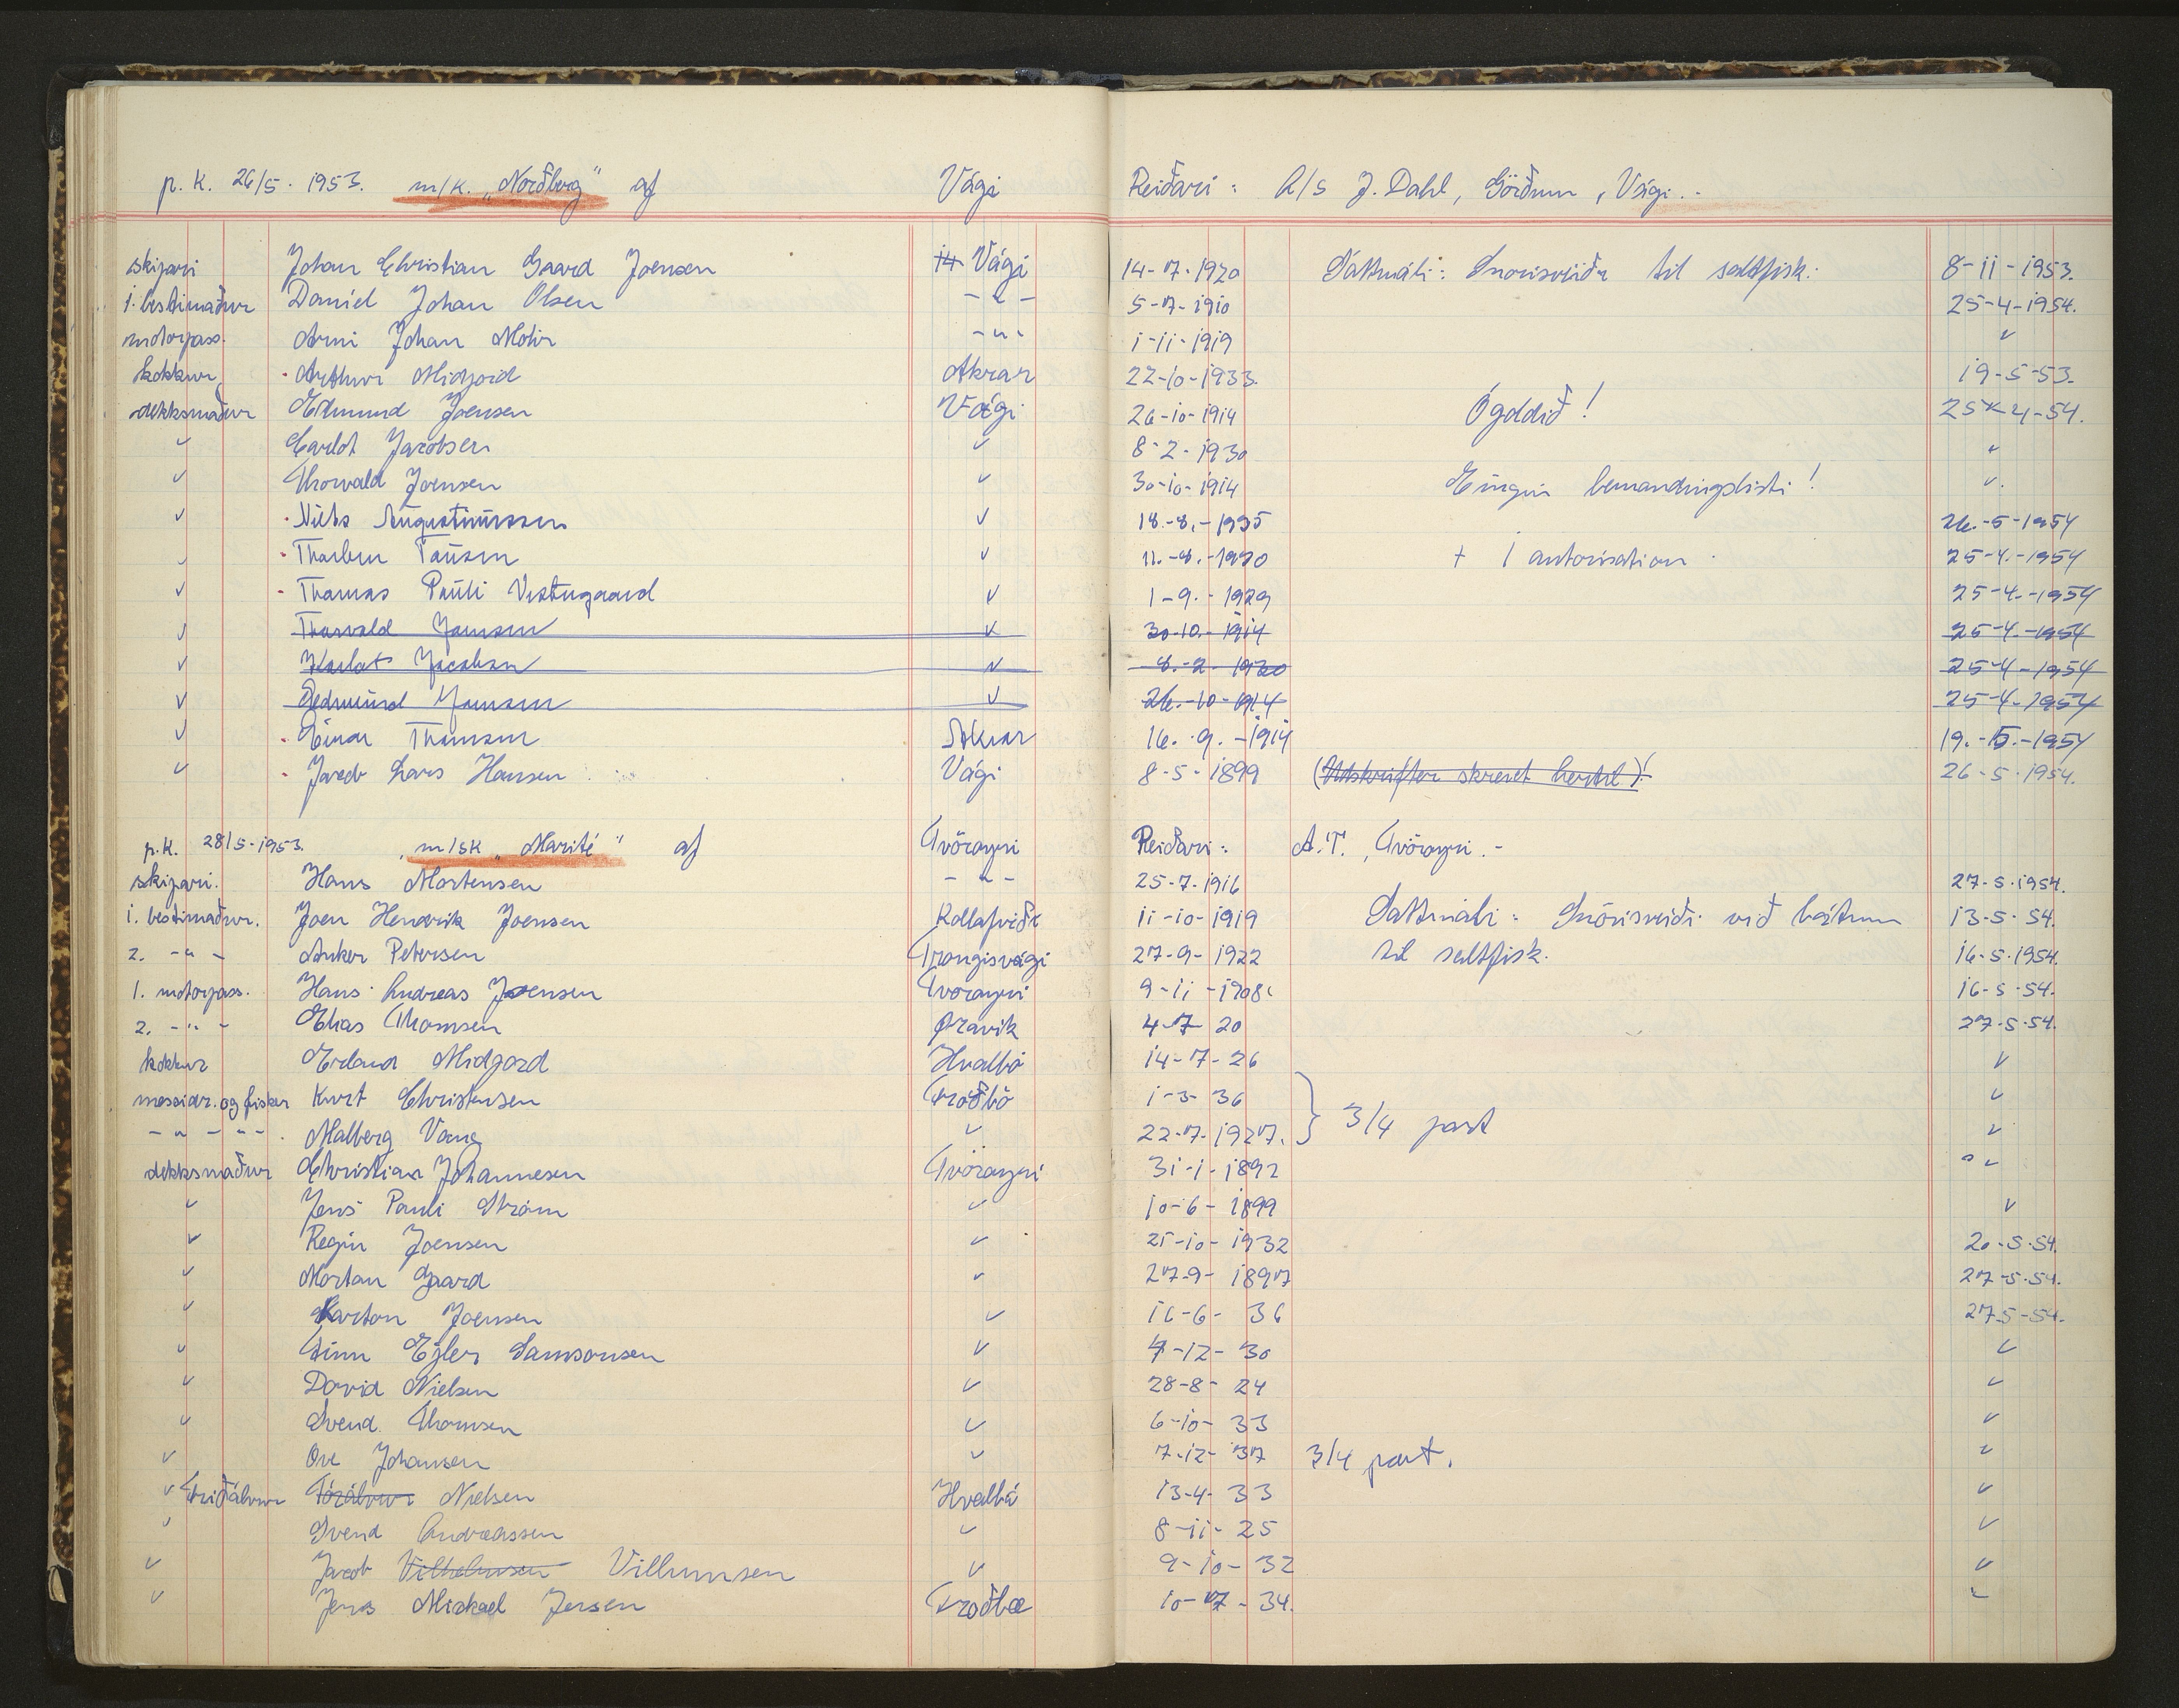 p.k. 26/5. 1953. m/k. „Norðberg" af Vági Reiðari: A/S J. Dahl, Görðum, Vági.-
skipari Johan Christian Gaard Joensen Vági 14-7-1920 Sáttmáli: Snørisveiða til saltfisk. 8-11-1953.
1. bestimaður Daniel Johan Olsen -"- 5-7-1910 25-4-1954.
motorpass. Arni Johan Mohr -"- 1-11-1919 "
kokkur Arthur Midjord Akrar 22-10-1933. 19-5-53.
dekksmaður Edmund Joensen Vági 26-10-1914 Ógddið! 25-4-54.
" Carlot Jacobsen " 8-2-1930 "
" Thorvald Joensen " 30-10-1914 Eingin bemandingslisti! "
" Niels Augustinussen " 18.-8.-1935 26.-5-1954
" Thorbin Pausen " 11.-8.-1930 + 1 autorisation. 25-4.-1954
" Thomas Pauli Vestergaard " 1-9.-1929 25-4.-1954
" Thorvald Joensen " 30.10.-1914 25-4.-1954
" Karlot Jacobsen " 8.-2-1930 25-4-1954
" Edmund Joensen " 26.-10-1914 25-4-1954
" Einar Thomsen Akrar 16.-9.-1914 19.-5.-1954
" Jacob Lars Hansen Vági 8-5-1899 (Udskrifter skrevet hertil)! 26-5-1954.
p.k. 28/5-1953. „m/sk „Marité" af Tvöroyri Reiðari: A.T., Tvöroyri.-
skipari. Hans Mortensen -"- 25-7-1916 27-5-1954.
1. bestimaður. Joen Hendrik Joensen Kollafirði 11-10-1919 Sáttmáli: Snörisveiði við bátum 13-5-54.
2. -"- Anker Petersen Trongisvági 27-9-1922 til saltfisk. 16-5-1954.
1. motorpass. Hans Andreas Joensen Tvöroyri 9-11-1908. 16-5-54.
2. -"- Elias Thomsen Øravik 4-7 20 27-5-54.
kokkur Erland Midgord Hvalbö 14-7-26 "
messidr. og fisker Kurt Christensen Froðbö 1-3-36 "
-"- -"- Malberg Vang " 22-7-1927. } 3/4 part "
dekksmaður Christian Johannesen Tvöroyri 31-1-1892 "
" Jens Pauli Strøm " 10-6-1899 "
" Regin Joensen " 25-10-1932 20-5-54.
" Mortan Gaard " 27-9-1897 27-5-54.
" Karton Joensen " 16-6-36 27-5-54.
" Finn Ejler Samsonsen " 4-12-30 "
" David Nielsen " 28-8-24 "
" Svend Thomsen " 6-10-33 "
" Ove Johansen " 7-12-37 3/4 part. "
" Friðálvur Tórálvur Nielsen Hvalbö 13-4-33 "
" Svend Andreassen " 8-11-25 "
" Jacob Vilhelmsen Villumsen " 9-10-32 "
" Jens Mickael Jensen Froðbœ 10-7-34. "